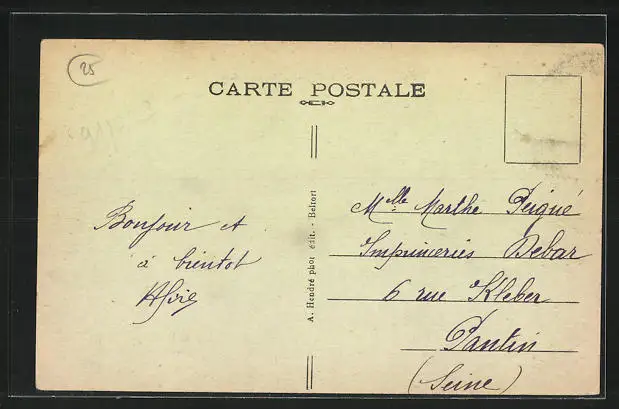 25
CARTE POSTALE
Bonjour et
à bientot
A. Hendré phot édit. - Belfort
Mlle Marthe Peigué
Imprimeries Debar
6 rue Kleber
Pantin
(Seine)